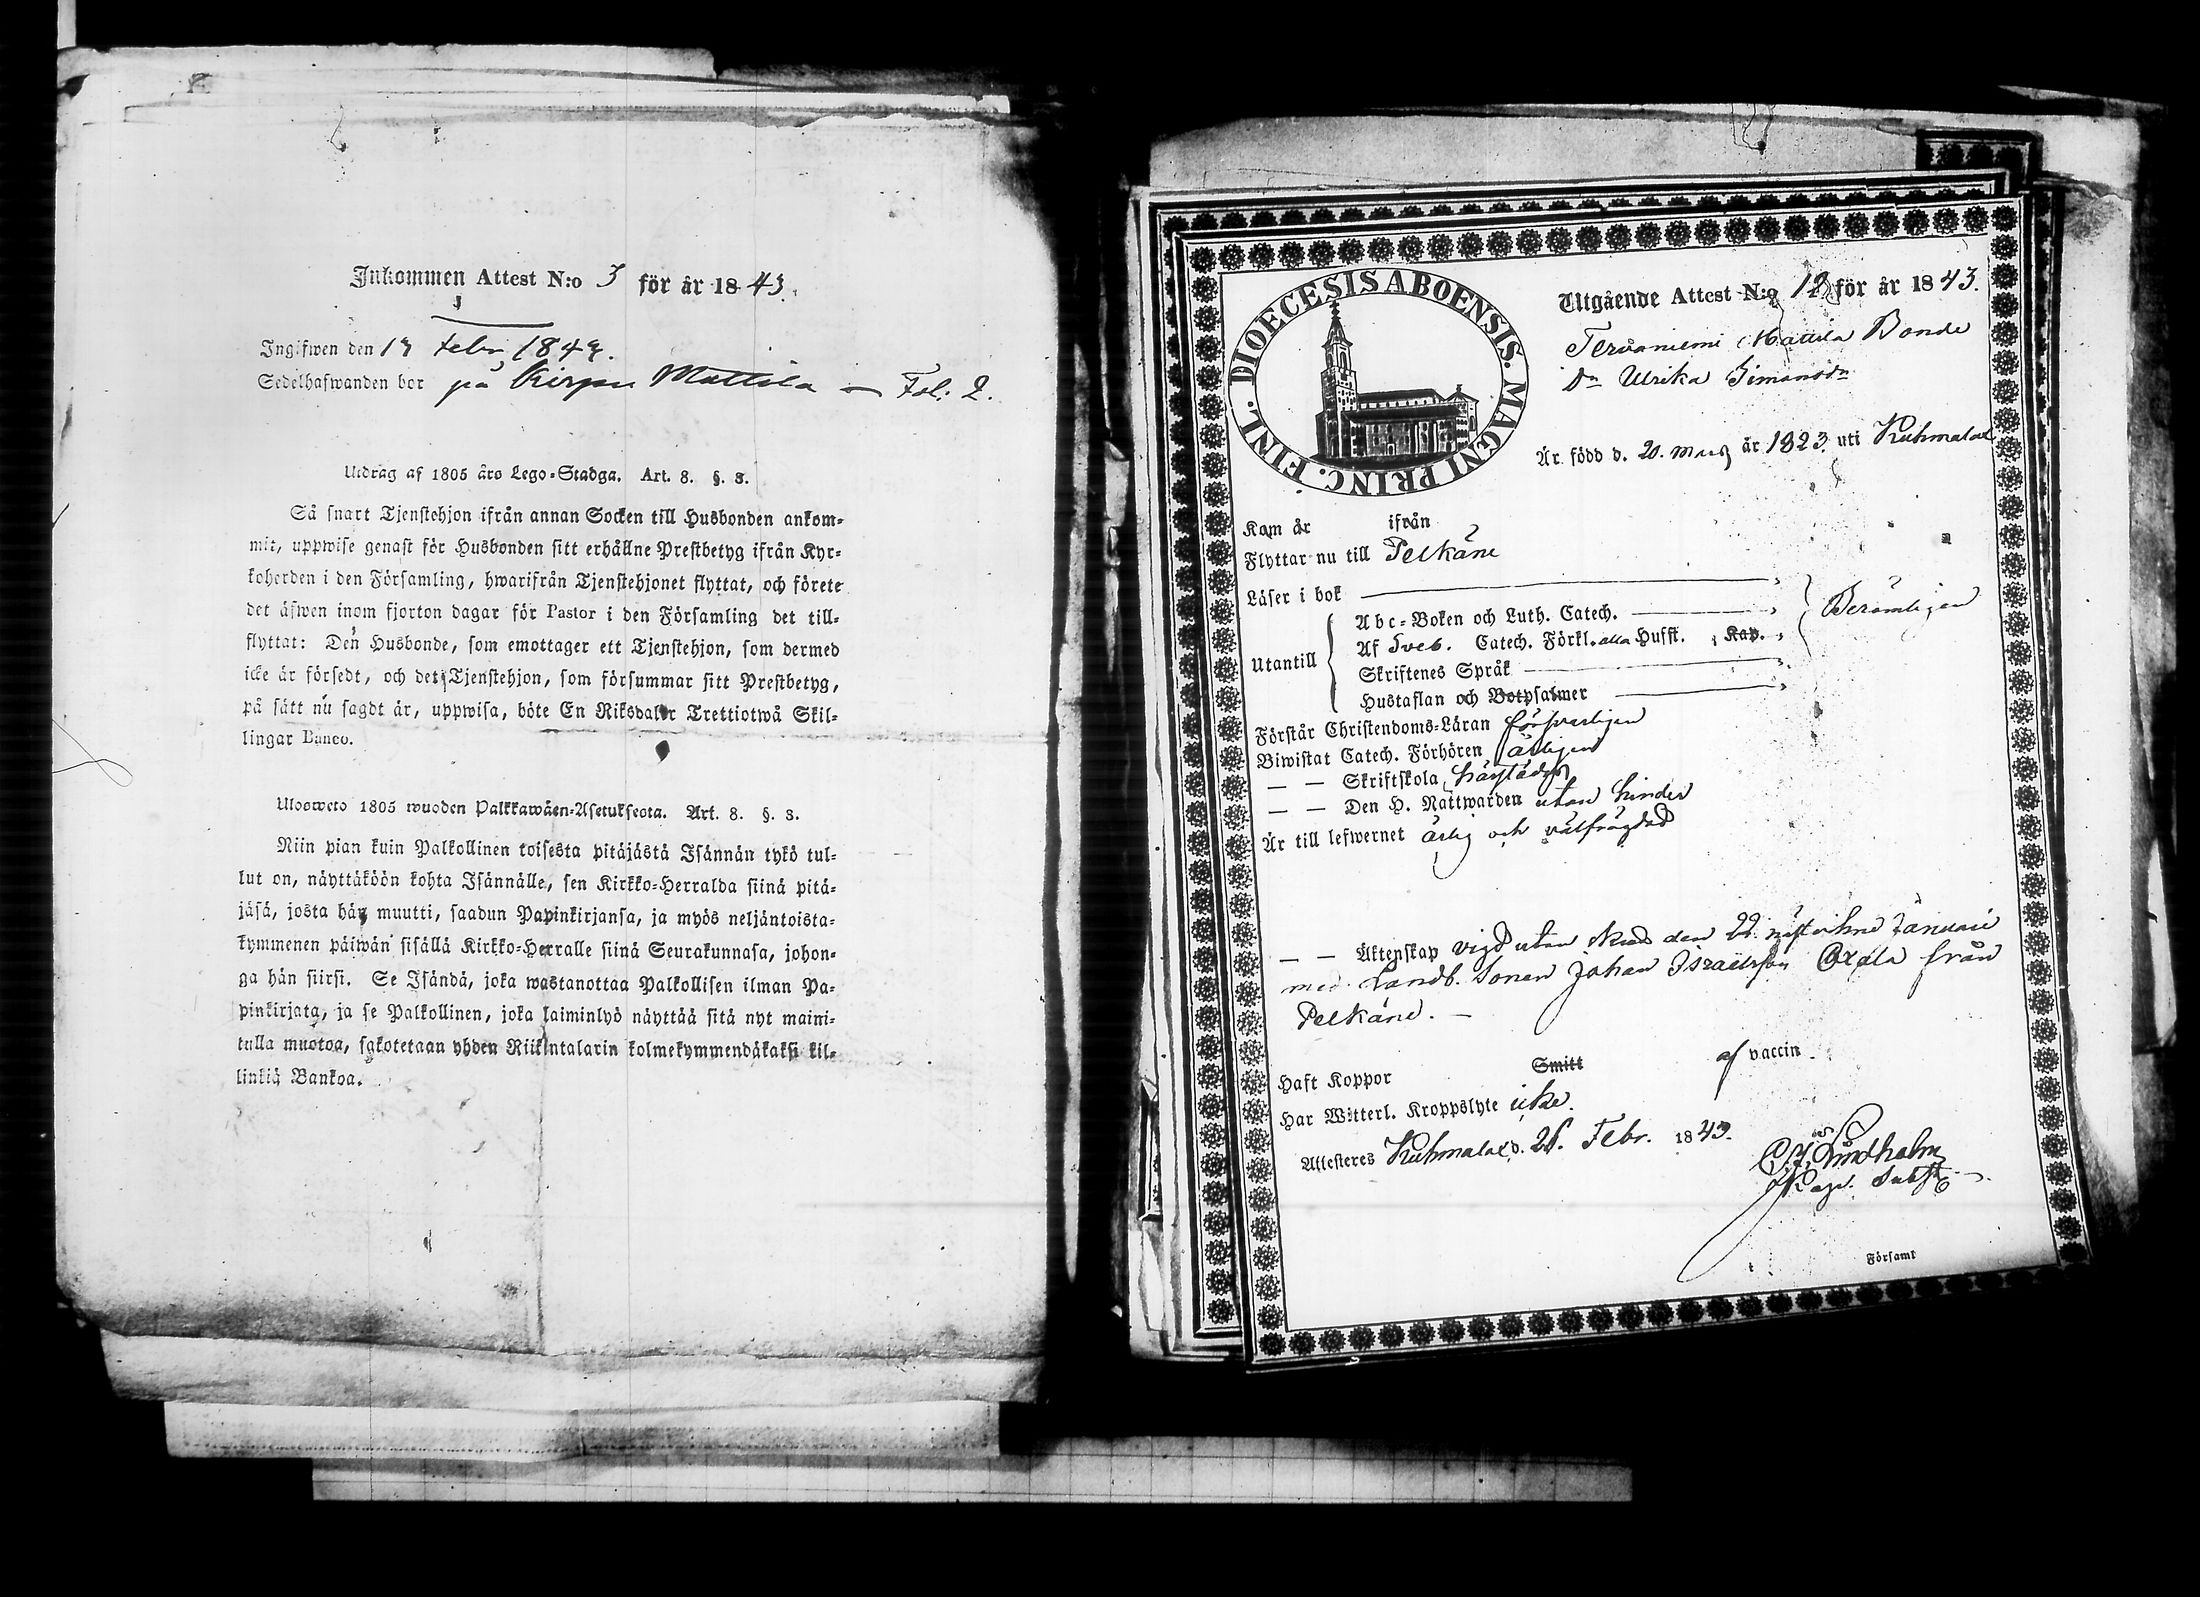 Inkommen Attest N:o 3 för år 1843.
Ingifwen den 19 Febr. 1843.
Sedelhafwanden bor på Mattila — Fol: 2.
Utdrag af 1805 års Lego-Stadga. Art. 8. §. 3.
Så snart Tjenstehjon ifrån annan Socken till Husbonden ankom-
mit, uppwise genast för Husbonden sitt erhållne Prestbetyg ifrån Kyr-
koherden i den Församling, hwarifrån Tjenstehjonet flyttat, och förete
det äfwen inom fjorton dagar för Pastor i den Församling det till-
flyttat: Den Husbonde, som emottager ett Tjenstehjon, som dermed
icke är försedt, och det Tjenstehjon, som försummar sitt Prestbetyg,
på sätt nu sagdt är, uppwisa, böte En Riksdaler Trettiotwå Skil-
lingar Banco.
Ulosweto 1805 wuoden Palkkawäen-Asetuksesta. Art. 8. §. 3.
Niin pian kuin Palkollinen toisesta pitäjästä Isännän tykö tul-
lut on, näyttäköön kohta Isännälle, sen Kirkko-Herralda siinä pitä-
jäsä, josta hän muutti, saadun Papinkirjansa, ja myös neljäntoista-
kymmenen päiwän sisällä Kirkko-Herralle siinä Seurakunnasa, johon-
ga hän siirsi. Se Isändä, joka wastanottaa Palkollisen ilman Pa-
pinkirjata, ja se Palkollinen, joka laiminlyö näyttää sitä nyt maini-
tulla muotoa, sakotetaan yhden Riikintalarin kolmekymmendäkaksi kil-
linkiä Bankoa.
DIOECESIS ABOENSIS. MAGNI PRINC. FINL.
Utgående Attest N:o 12 för år 1843.
Tervaniemi Mattila Bonde
Dn Ulrika Simonsdn
Är född d. 20. Mars år 1823. uti Kuhmalax
Kom år ifrån
Flyttar nu till Pelkäne
Läser i bok
Utantill
Abc-Boken och Luth. Catech.
Af Sveb. Catech. Förkl. alla Husst. Kap.
Skriftenes Språk
Hustaflan och Botpsalmer
Berömligen
Förstår Christendoms-Läran försvarligen
Biwistat Catech. Förhören årligen
— — Skriftskola
— — Den H. Nattwarden utan hinder
Är till lefwernet ärlig och välfrägdad
— — Äktenskap vigd utan den 22 Januarii
med Landb. Sonen Johan Israelsson från
Pelkäne. —
Haft Koppor Smitt af vaccin.
Har Witterl. Kroppslyte icke.
Attesteres Kuhmalax d. 26. Febr. 1843.
Lindholm
Församl